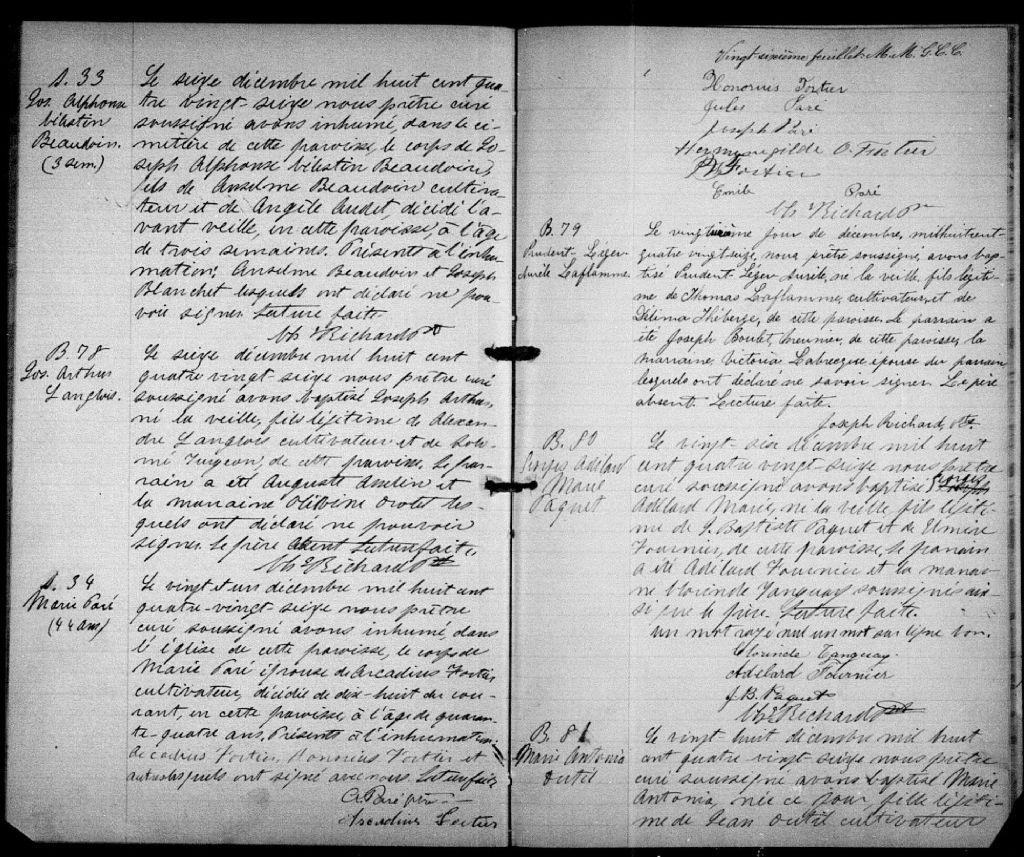 S. 33
Jos. Alphonse
Beaudoin.
(3 sem.)
Le seize décembre mil huit cent qua-
tre vingt-seize nous prêtre curé
soussigné avons inhumé, dans le ci-
metière de cette paroisse, le corps de Jo-
seph Alphonse Célestin Beaudoin,
fils de Anselme Beaudoin cultiva-
teur et de Angèle Audet, décédé l'a-
vant veille, en cette paroisse, à l'âge
de trois semaines. Présents à l'inhu-
mation: Anselme Beaudoin et Joseph
Blanchet lesquels ont déclaré ne pou-
voir signer. Lecture faite.
Richard Ptre
B. 78
Jos. Arthur
Langlois.
Le seize décembre mil huit cent
quatre vingt-seize nous prêtre curé
soussigné avons baptisé Joseph Arthur,
né la veille, fils légitime de Alexan-
dre Langlois cultivateur et de
Turgeon, de cette paroisse. Le par-
rain a été Auguste Asselin et
la marraine les-
quels ont déclaré ne pouvoir
signer. Le père absent. Lecture faite.
Richard Ptre
S. 34
Marie Paré
(44 ans)
Le vingt et un décembre mil huit cent
quatre-vingt seize nous prêtre
curé soussigné avons inhumé, dans
l'église de cette paroisse, le corps de
Marie Paré épouse de Arcadius Fortier
cultivateur, décédée de dix-huit du cou-
rant, en cette paroisse, à l'âge de quaran-
te-quatre ans. Présents à l'inhumation:
Arcadius Fortier, Honorius Fortier et
autres lesquels ont signé avec nous. Lecture faite
O. Paré ptre
Arcadius Fortier
Vingt-sixième feuillet. M. M. G. C. C.
Honorius Fortier
Jules Paré
Joseph Paré
Hermenegilde O. Fortier
Fortier
Emile Paré
Richard Ptre
B. 79
Prudent Léger
Surele Laflamme.
Le vingtième jour de décembre, mil huit cent-
quatre vingt-seize, nous, prêtre soussigné, avons bap-
tisé Prudent Léger Surele, né la veille, fils légiti-
me de Thomas Laflamme, cultivateur, et de
Délima Théberge, de cette paroisse. Le parrain a
été Joseph Boulet, meunier, de cette paroisse, la
marraine, Victoria Labrecque épouse du parrain
lesquels ont déclaré ne savoir signer. Le père
absent. Lecture faite.
Joseph Richard, Ptre
B. 80
Georges Adélard
Marie
Paquet
Le vingt-six décembre mil huit
cent quatre vingt-seize nous prêtre
curé soussigné avons baptisé Georges Joseph
Adélard Marie, né la veille, fils légiti-
me de J. Baptiste Paquet et de Elmire
Fournier, de cette paroisse, le parrain
a été Adélard Fournier et la marrai-
ne Clorinde Tanguay soussignés ain-
si que le père. Lecture faite.
un mot rayé nul un mot sur ligne bon.
Clorinde Tanguay
Adélard Fournier
J. B. Paquet
Richard Ptre
B. 81
Marie Antonia
Outil
Le vingt huit décembre mil huit
cent quatre vingt seize nous prêtre
curé soussigné avons baptisé Marie
Antonia, née ce jour, fille légiti-
me de Jean Outil cultivateur